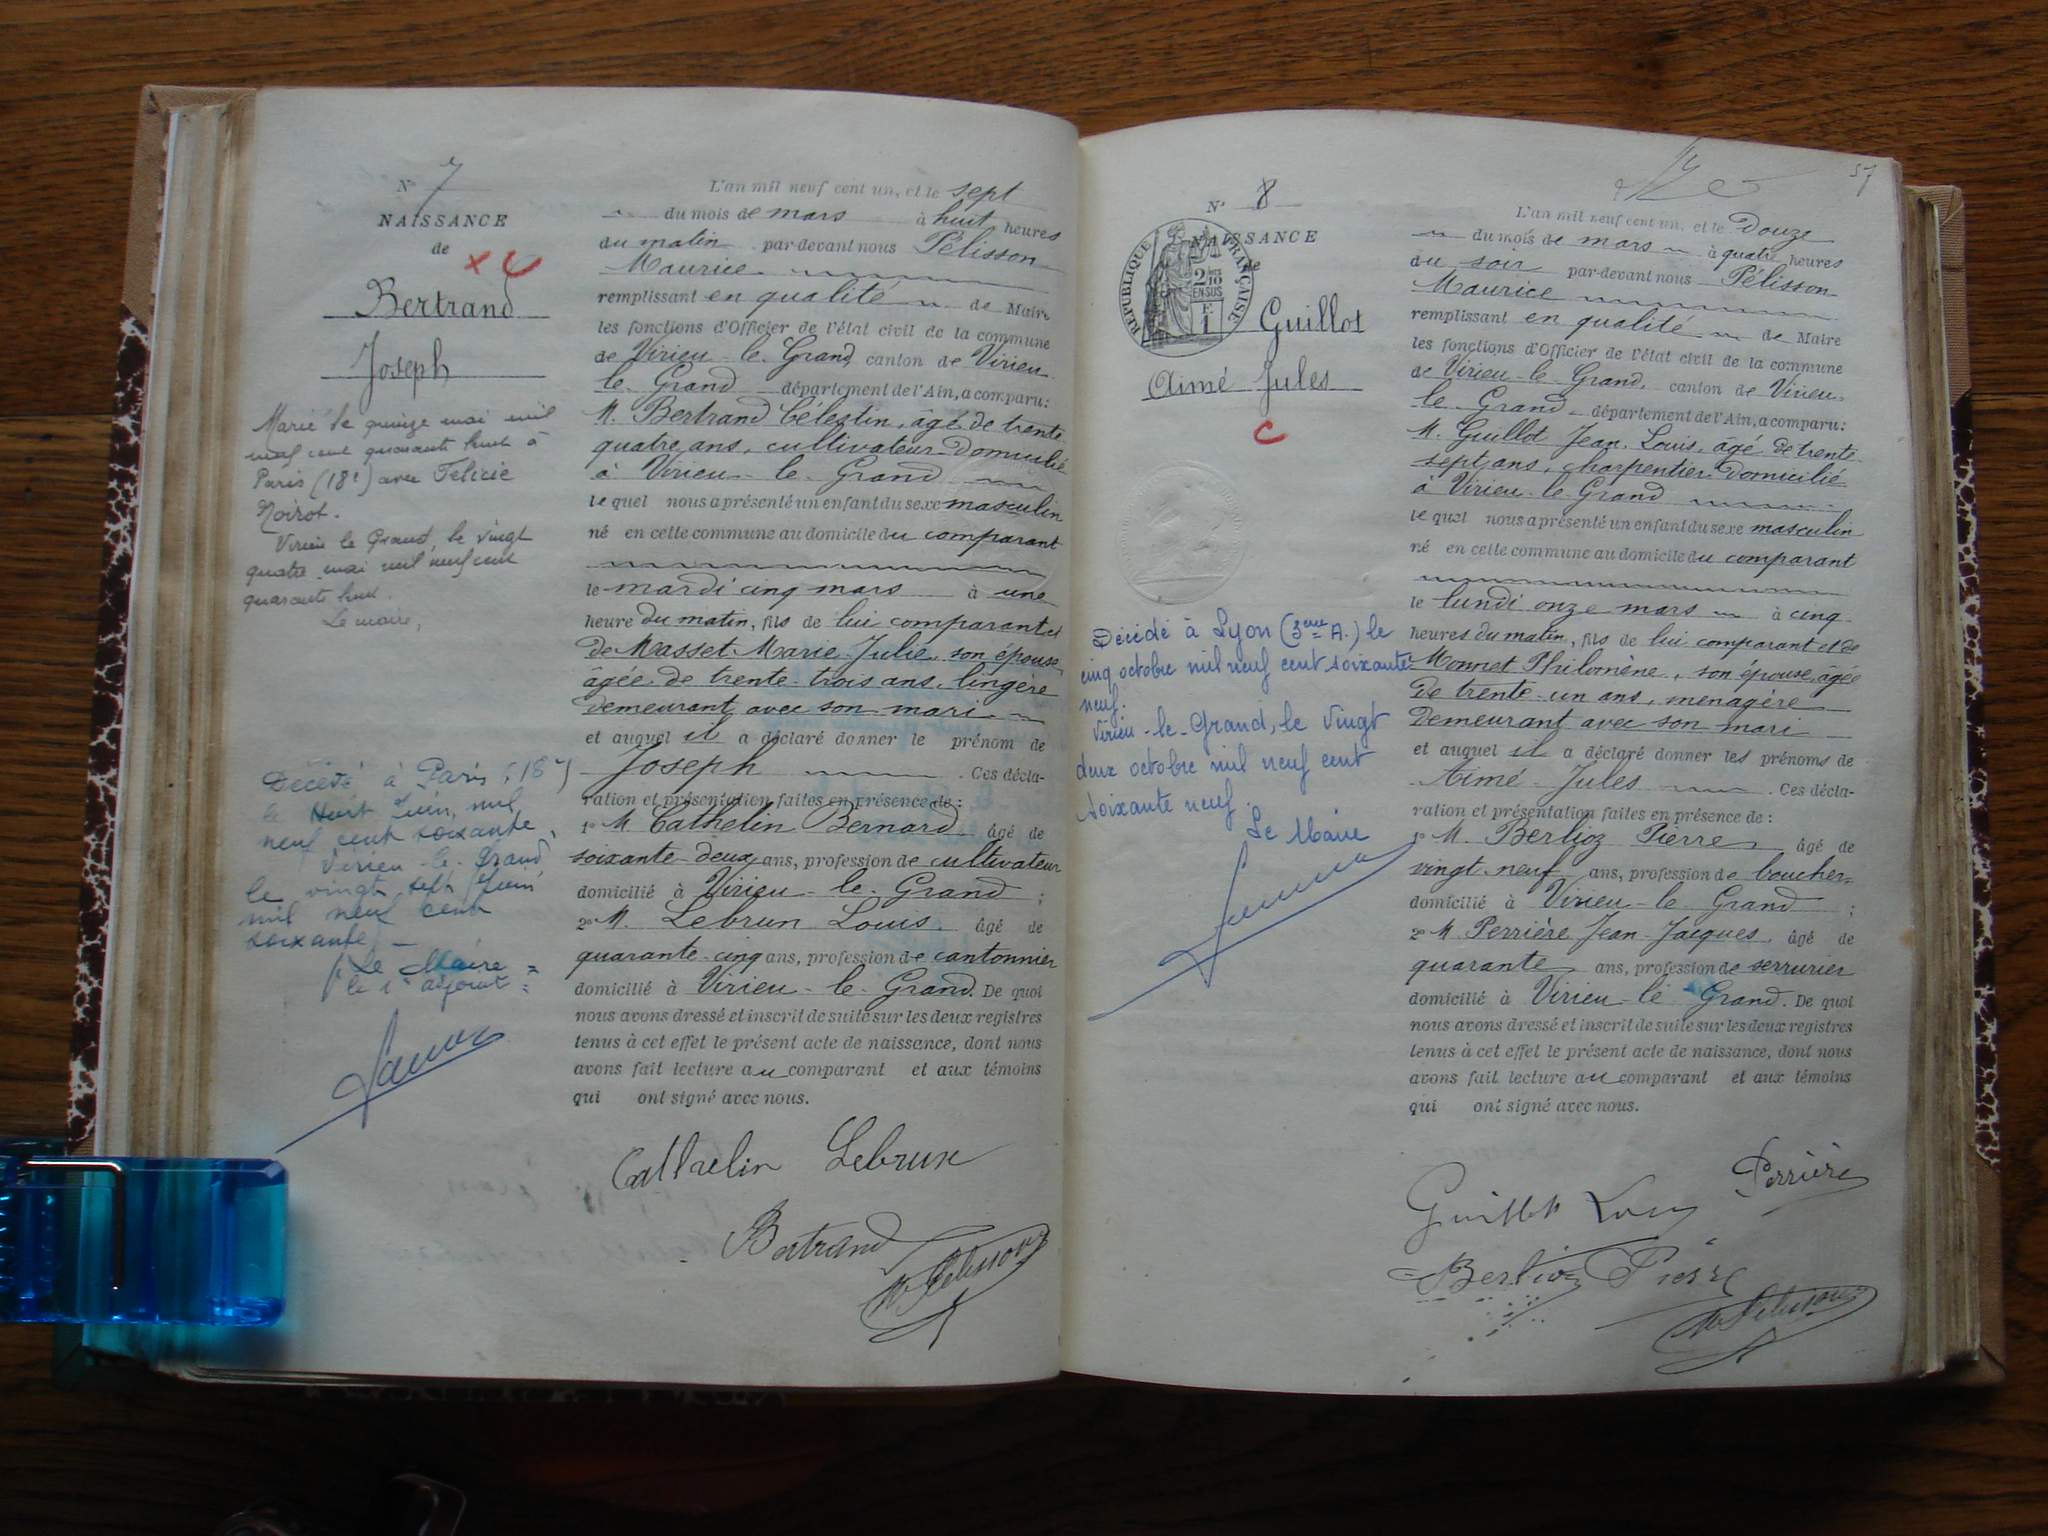 N° 7
NAISSANCE
de
Bertrand
Joseph
Marié le quinze mai mil
neuf cent quarante huit à
Paris (18e) avec Félicie
Noirot.
Virieu le Grand, le vingt
quatre mai mil neuf cent
quarante huit.
Le maire,
Décédé à Paris (18e)
le Huit Juin, mil
neuf cent soixante,
Virieu-le-Grand
le vingt sept Juin
mil neuf cent
soixante, -
P. Le Maire =
le 1er adjoint =
L'an mil neuf cent un, et le sept
du mois de mars à huit heures
du matin par-devant nous Pélisson
Maurice
remplissant en qualité de Maire
les fonctions d'Officier de l'état civil de la commune
de Virieu-le-Grand, canton de Virieu-
le-Grand département de l'Ain, a comparu:
M. Bertrand Célestin, âgé de trente-
quatre ans, cultivateur domicilié
à Virieu-le-Grand
lequel nous a présenté un enfant du sexe masculin
né en cette commune au domicile du comparant
le mardi cinq mars à une
heure du matin, fils de lui comparant et
de Masset Marie-Julie, son épouse,
âgée de trente-trois ans, lingère
demeurant avec son mari
et auquel il a déclaré donner le prénom de
Joseph . Ces décla-
ration et présentation faites en présence de:
1° M. Cathelin Bernard âgé de
soixante-deux ans, profession de cultivateur
domicilié à Virieu-le-Grand ;
2° M. Lebrun Louis, âgé de
quarante-cinq ans, profession de cantonnier
domicilié à Virieu-le-Grand. De quoi
nous avons dressé et inscrit de suite sur les deux registres
tenus à cet effet le présent acte de naissance, dont nous
avons fait lecture au comparant et aux témoins
qui ont signé avec nous.
Cathelin Lebrun
Bertrand
M Pélisson
57
N° 8
NAISSANCE
de
RÉPUBLIQUE FRANÇAISE
2/10
EN SUS
Guillot
Aimé Jules
C
Décédé à Lyon (3ème A.) le
cinq octobre mil neuf cent soixante
neuf.
Virieu-le-Grand, le vingt
deux octobre mil neuf cent
soixante neuf.
Le Maire
L'an mil neuf cent un, et le Douze
du mois de mars à quatre heures
du soir par-devant nous Pélisson
Maurice
remplissant en qualité de Maire
les fonctions d'Officier de l'état civil de la commune
de Virieu-le-Grand, canton de Virieu-
le-Grand département de l'Ain, a comparu:
M. Guillot Jean-Louis, âgé de trente-
sept ans, charpentier domicilié
à Virieu-le-Grand
lequel nous a présenté un enfant du sexe masculin
né en cette commune au domicile du comparant
le lundi onze mars à cinq
heures du matin, fils de lui comparant et de
Monnet Philomène, son épouse, âgée
de trente-un ans, menagère
demeurant avec son mari
et auquel il a déclaré donner les prénoms de
Aimé-Jules . Ces décla-
ration et présentation faites en présence de:
1° M. Berlioz Pierre âgé de
vingt-neuf ans, profession de boucher
domicilié à Virieu-le-Grand ;
2° M. Perrière Jean-Jacques, âgé de
quarante ans, profession de serrurier
domicilié à Virieu-le-Grand. De quoi
nous avons dressé et inscrit de suite sur les deux registres
tenus à cet effet le présent acte de naissance, dont nous
avons fait lecture au comparant et aux témoins
qui ont signé avec nous.
Perrière
Guillot Louis
Berlioz Pierre
M Pélisson